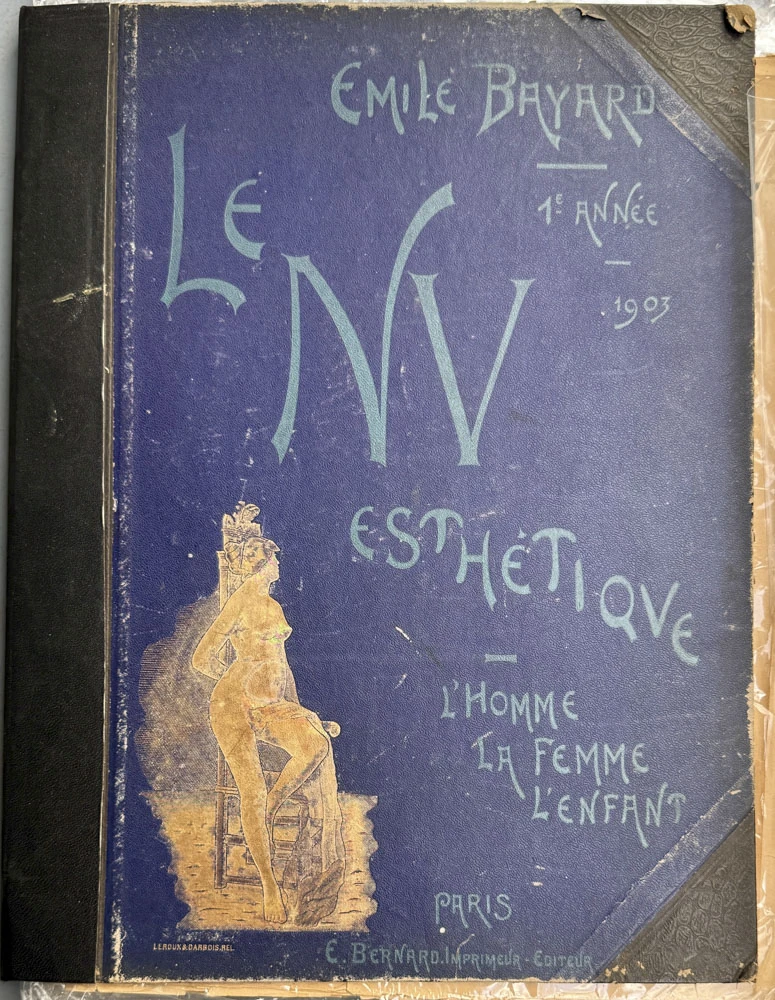 EMILE BAYARD
1E ANNÉE
1903
LE
NV
ESTHÉTIQVE
L'HOMME
LA FEMME
L'ENFANT
PARIS
E. BERNARD. IMPRIMEUR - EDITEUR
LEROUX & DARBOIS. REL.